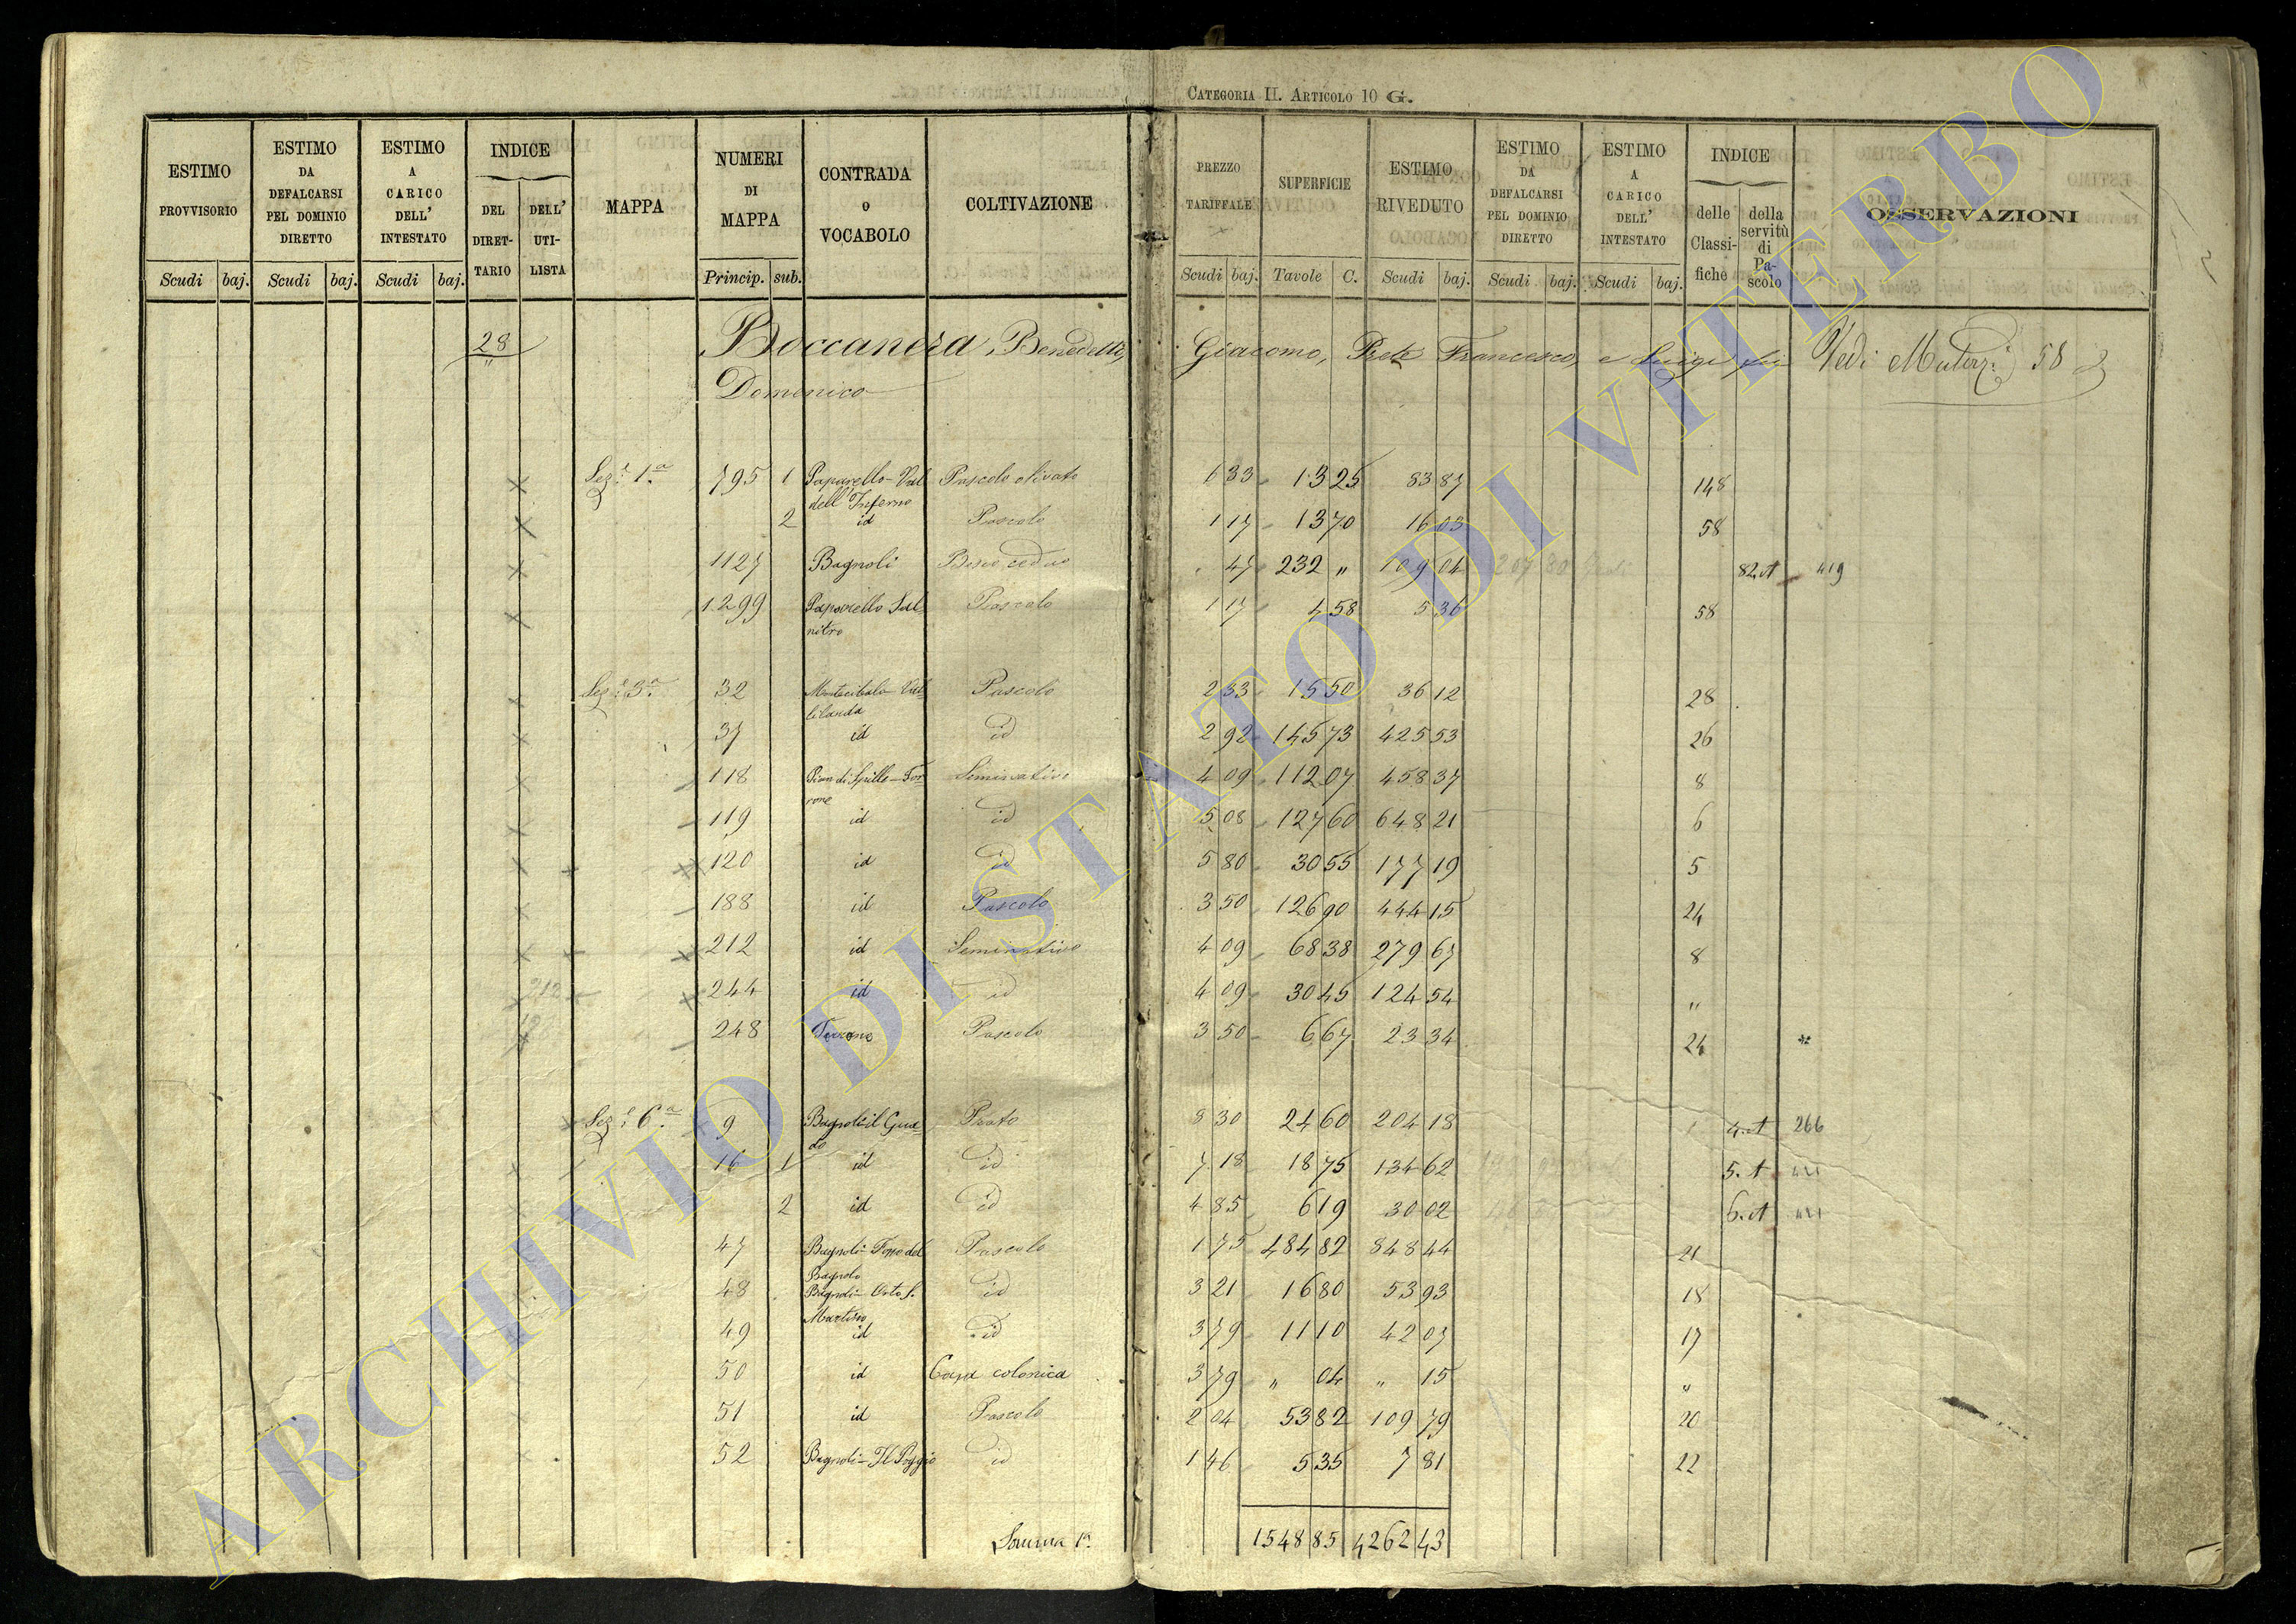 CATEGORIA II. ARTICOLO 10 G.
ESTIMO PROVVISORIO | ESTIMO DA DEFALCARSI PEL DOMINIO DIRETTO | ESTIMO A CARICO DELL' INTESTATO | INDICE | MAPPA | NUMERI DI MAPPA | CONTRADA O VOCABOLO | COLTIVAZIONE | PREZZO TARIFFALE | SUPERFICIE | ESTIMO RIVEDUTO | ESTIMO DA DEFALCARSI PEL DOMINIO DIRETTO | ESTIMO A CARICO DELL' INTESTATO | INDICE | OSSERVAZIONI
DEL DIRETTARIO | DELL' UTILISTA | delle Classifiche | della servitù di Pascolo
Scudi baj. | Scudi baj. | Scudi baj. | Princip. sub. | Scudi baj. | Tavole C. | Scudi baj. | Scudi baj. | Scudi baj.
28 Boccanera, Benedetto, Giacomo, Prete Francesco, e Luigi Vedi 58
Domenico
Sez.e 1a 795 1 Paparello - Val dell'Inferno Pascolo olivato 6 33 13 25 83 87 148
2 id Pascolo 1 17 13 70 16 03 58
1127 Bagnoli Bosco ceduo 47 232 " 109 04 82. A 419
1299 Paparello Salnitro Pascolo 1 17 4 58 5 36 58
Sez.e 3a 32 Pascolo 2 33 15 50 36 12 28
37 id id 2 92 145 73 425 53 26
118 Pian di Spille - Torrone Seminativo 4 09 112 07 458 37 8
119 id id 5 08 127 60 648 21 6
120 id id 5 80 30 55 177 19 5
188 id Pascolo 3 50 126 90 444 15 24
212 id Seminativo 4 09 68 38 279 67 8
244 id id 4 09 30 45 124 54 "
248 Torrone Pascolo 3 50 6 67 23 34 24 *
Sez.e 6a 9 Bagnoli il Guado Prato 8 30 24 60 204 18 4. A 266
16 1 id id 7 18 18 75 134 62 5. A
2 id id 4 85 6 19 30 02 6. A
47 Bagnoli - Fosso del Bagnolo Pascolo 1 75 484 82 848 44 21
48 Bagnoli - Orto S. Martino id 3 21 16 80 53 93 18
49 id id 3 79 11 10 42 07 17
50 id Casa colonica 3 79 " 04 " 15 "
51 id Pascolo 2 04 53 82 109 79 20
52 Bagnoli - Il Poggio id 1 46 5 35 7 81 22
Somma 1a 1548 85 4262 43
ARCHIVIO DI STATO DI VITERBO